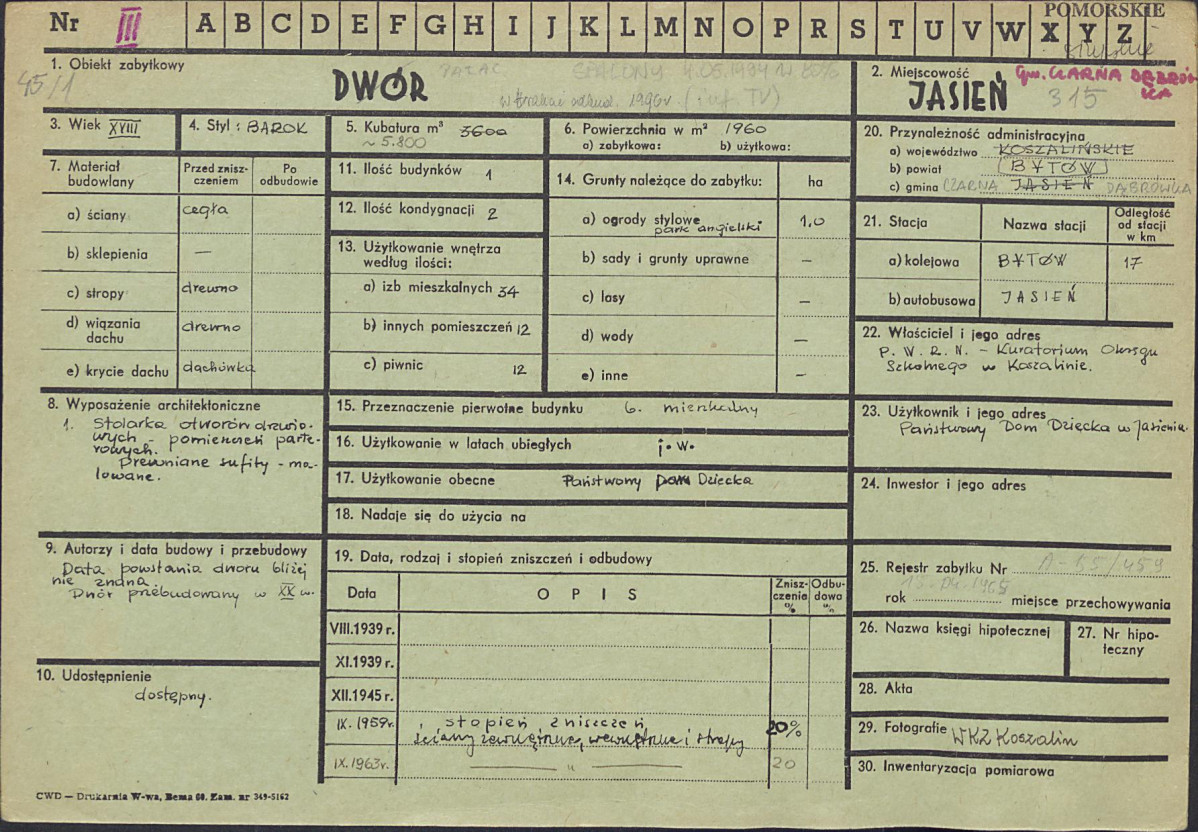 Nr III A B C D E F G H I J K L M N O P R S T U V W X Y Z
POMORSKIE
słupskie
45/1
1. Obiekt zabytkowy
PAŁAC
SPALONY 4.05.1994 r. w 80%
DWÓR
w trakcie odbud. 1996r (inf. TV)
2. Miejscowość
Gm. CZARNA DĄBRÓWKA
JASIEŃ
315
3. Wiek XVIII
4. Styl: BAROK
5. Kubatura m³ 3600
~ 5.800
6. Powierzchnia w m² 1960
a) zabytkowa: b) użytkowa:
7. Materiał budowlany
Przed zniszczeniem
Po odbudowie
a) ściany cegła
b) sklepienia —
c) stropy drewno
d) wiązania dachu drewno
e) krycie dachu dachówka
8. Wyposażenie architektoniczne
1. Stolarka otworów drzwio-
wych - pomieszczeń parte-
rowych.
Drewniane sufity - ma-
lowane.
9. Autorzy i data budowy i przebudowy
Data powstania dworu bliżej
nie znana.
Dwór przebudowany w XX w.
10. Udostępnienie
dostępny.
11. Ilość budynków 1
12. Ilość kondygnacji 2
13. Użytkowanie wnętrza
według ilości:
a) izb mieszkalnych 34
b) innych pomieszczeń 12
c) piwnic 12
14. Grunty należące do zabytku: ha
a) ogrody stylowe 1,0
park angielski
b) sady i grunty uprawne —
c) lasy —
d) wody —
e) inne —
15. Przeznaczenie pierwotne budynku b. mieszkalny
16. Użytkowanie w latach ubiegłych j. w.
17. Użytkowanie obecne Państwowy Dom Dziecka
18. Nadaje się do użycia na
19. Data, rodzaj i stopień zniszczeń i odbudowy
Data
OPIS
Zniszczenia %
Odbudowa %
VIII.1939 r.
XI.1939 r.
XII.1945 r.
IX. 1959r. stopień zniszczeń, 20%
ściany zewnętrzne, wewnętrzne i stropy
IX. 1963r. — " — 20
20. Przynależność administracyjna
a) województwo KOSZALIŃSKIE
b) powiat BYTÓW
c) gmina CZARNA JASIEŃ DĄBRÓWKA
21. Stacja
Nazwa stacji
Odległość od stacji w km
a) kolejowa BYTÓW 17
b) autobusowa JASIEŃ
22. Właściciel i jego adres
P. W. R. N. - Kuratorium Okręgu
Szkolnego w Koszalinie.
23. Użytkownik i jego adres
Państwowy Dom Dziecka w Jasieniu
24. Inwestor i jego adres
25. Rejestr zabytku Nr A-55/459
15.04.1965
rok miejsce przechowywania
26. Nazwa księgi hipotecznej
27. Nr hipo-
teczny
28. Akta
29. Fotografie WKZ Koszalin
30. Inwentaryzacja pomiarowa
CWD — Drukarnia W-wa, Bema 60. Zam. nr 349-5162